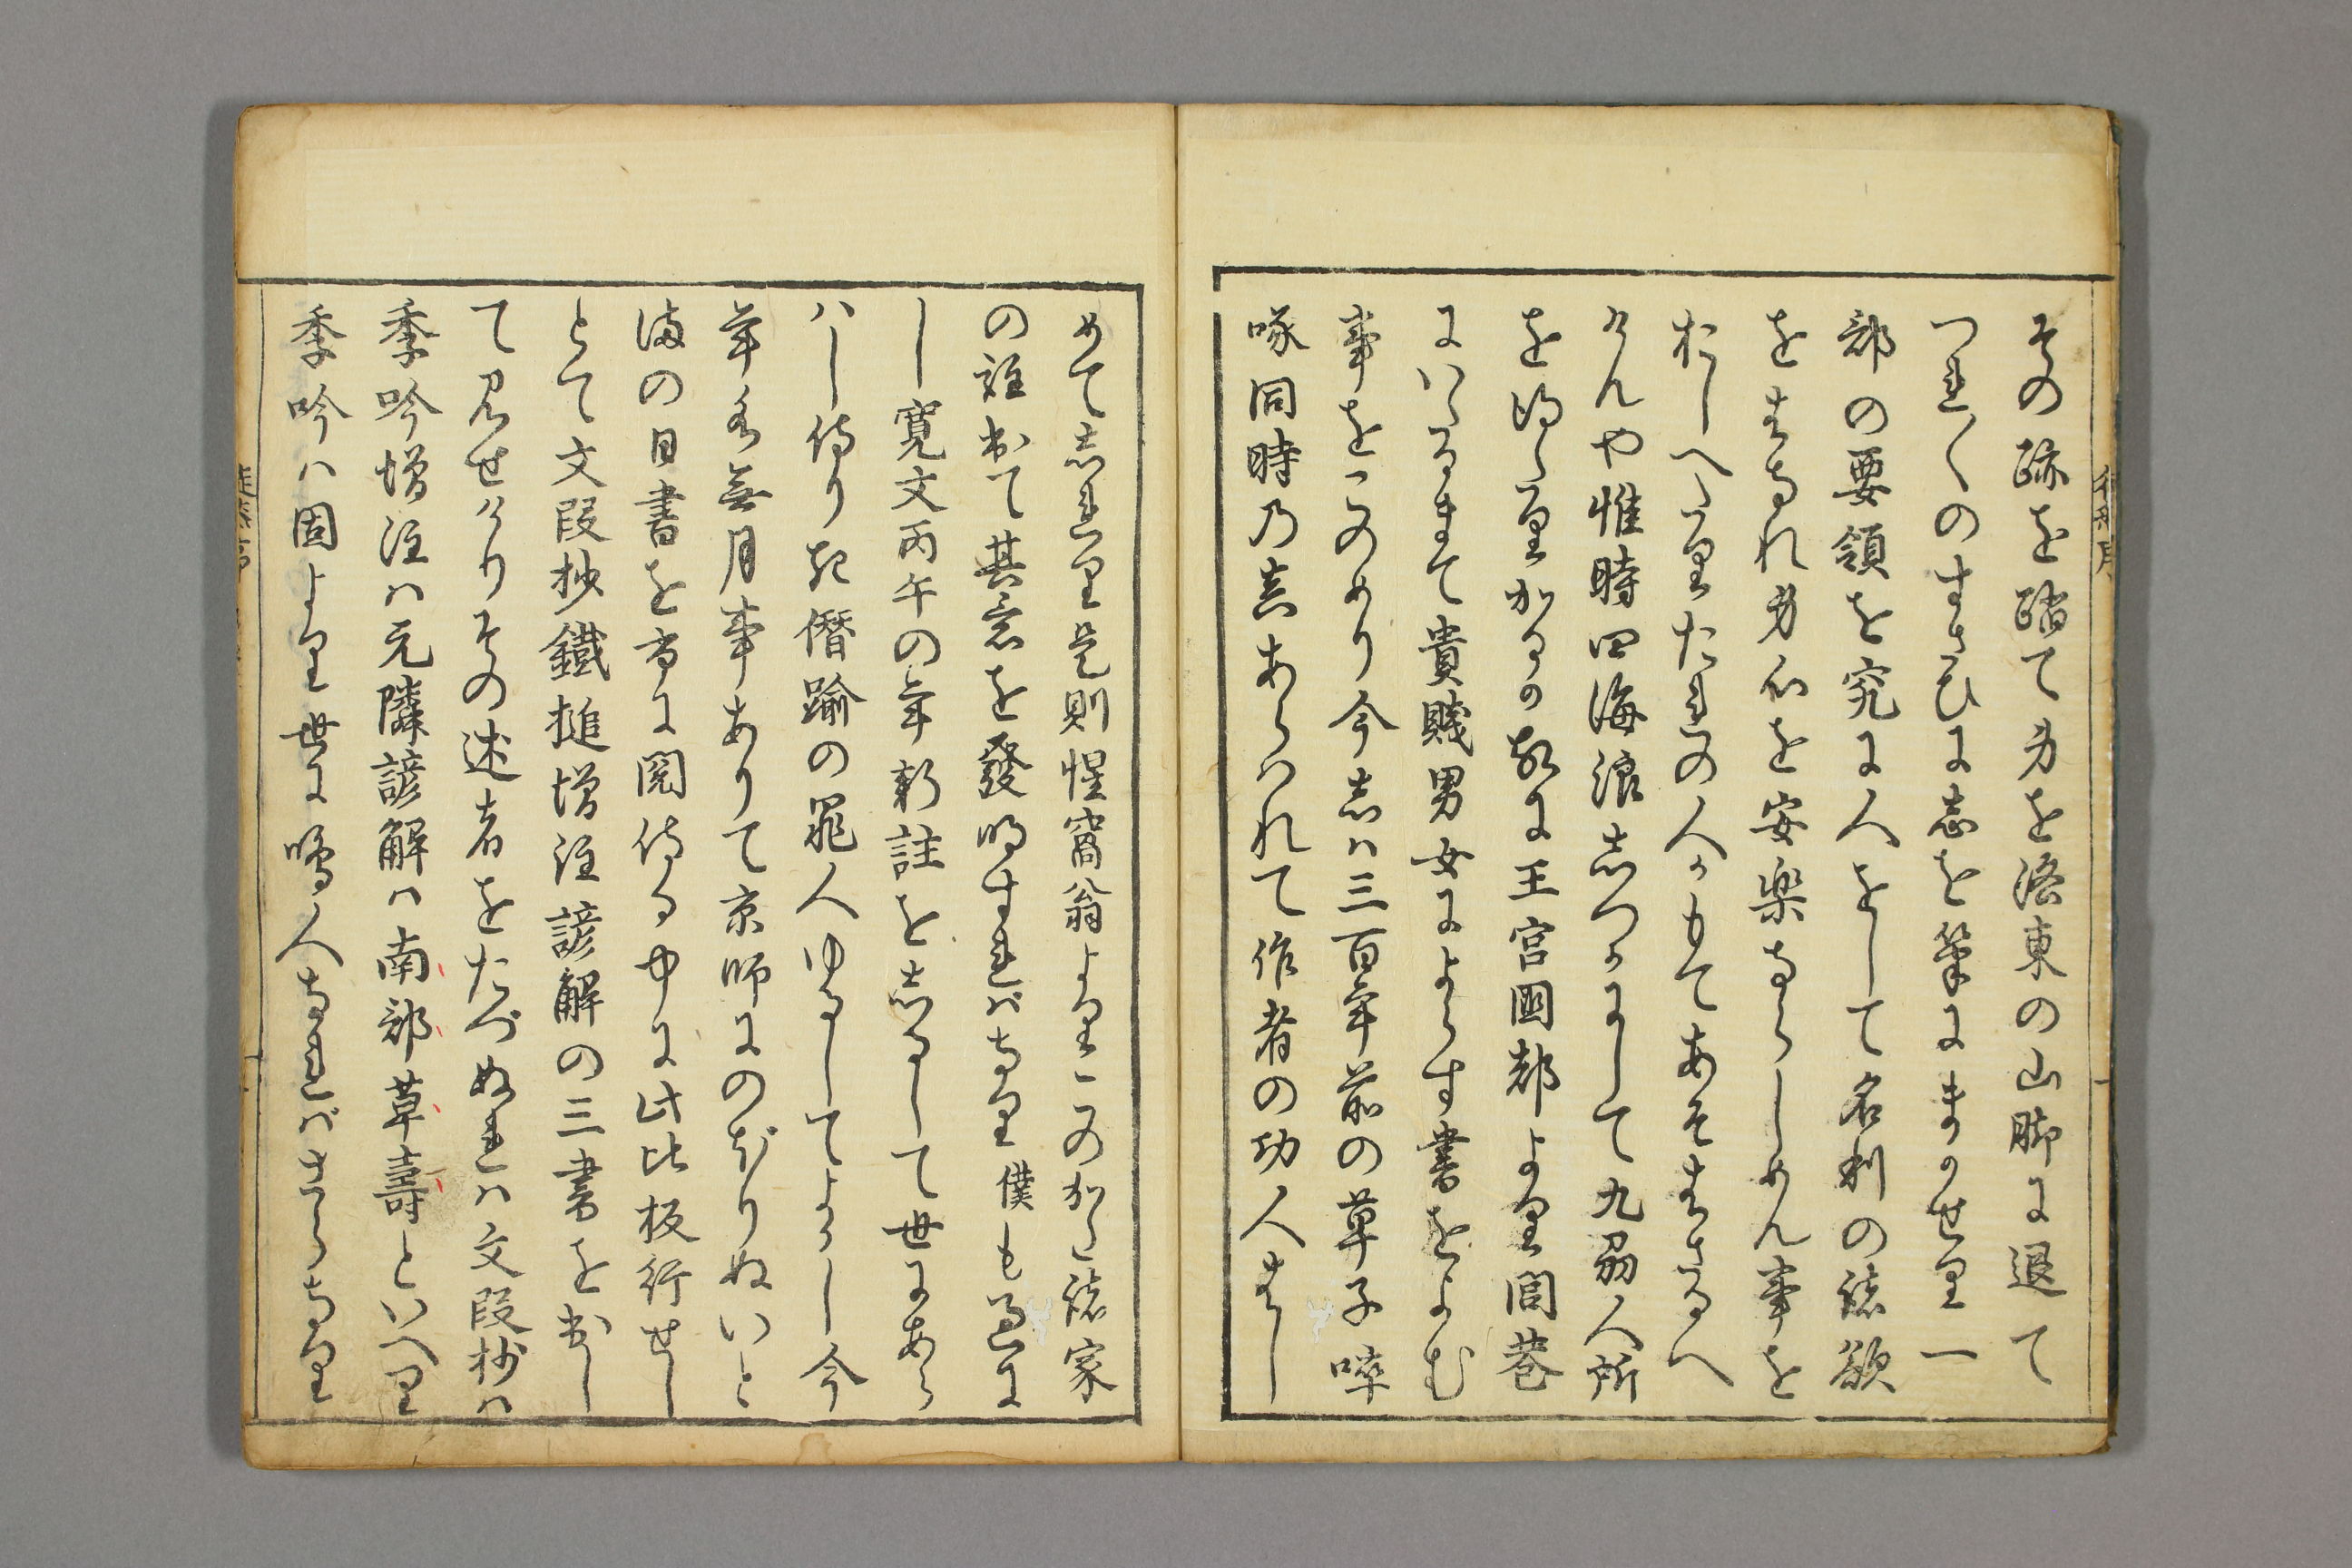 その跡を踏て身を洛東の山脚に退て
つれ〱のすさひに志を筆にまかせり一
部の要領を究に人をして名利の諸欲
をはなれ身心を安楽ならしめん事を
おしへたりたれの人かもてあそはさるへ
けんや惟時四海浪しつかにして九州人所
を得たりかるか故に王宮国都より閭巷
にいたるまて貴賤男女によらす書をよむ
事をこのめり今しは三百年前の草子啐
啄同時乃真あらはれて作者の功人はし
めてしれり是則惺窩翁よりこのかた諸家
の註出て其意を發明すれはなり僕も過に
し寛文丙午の年新註をしるして世にあら
はし侍りき僭踰の罪人ゆるしてよかし今
年水無月事ありて京師にのぼりぬいと
満の日書を市に閲侍る中に此比板行せし
とて文段抄鐵槌増註諺解の三書を出し
て見せけりその述者をたづぬれは文段抄は
季吟増註は元隣諺解は南部草壽といへり
季吟は固より世に鳴る人なればさらなり